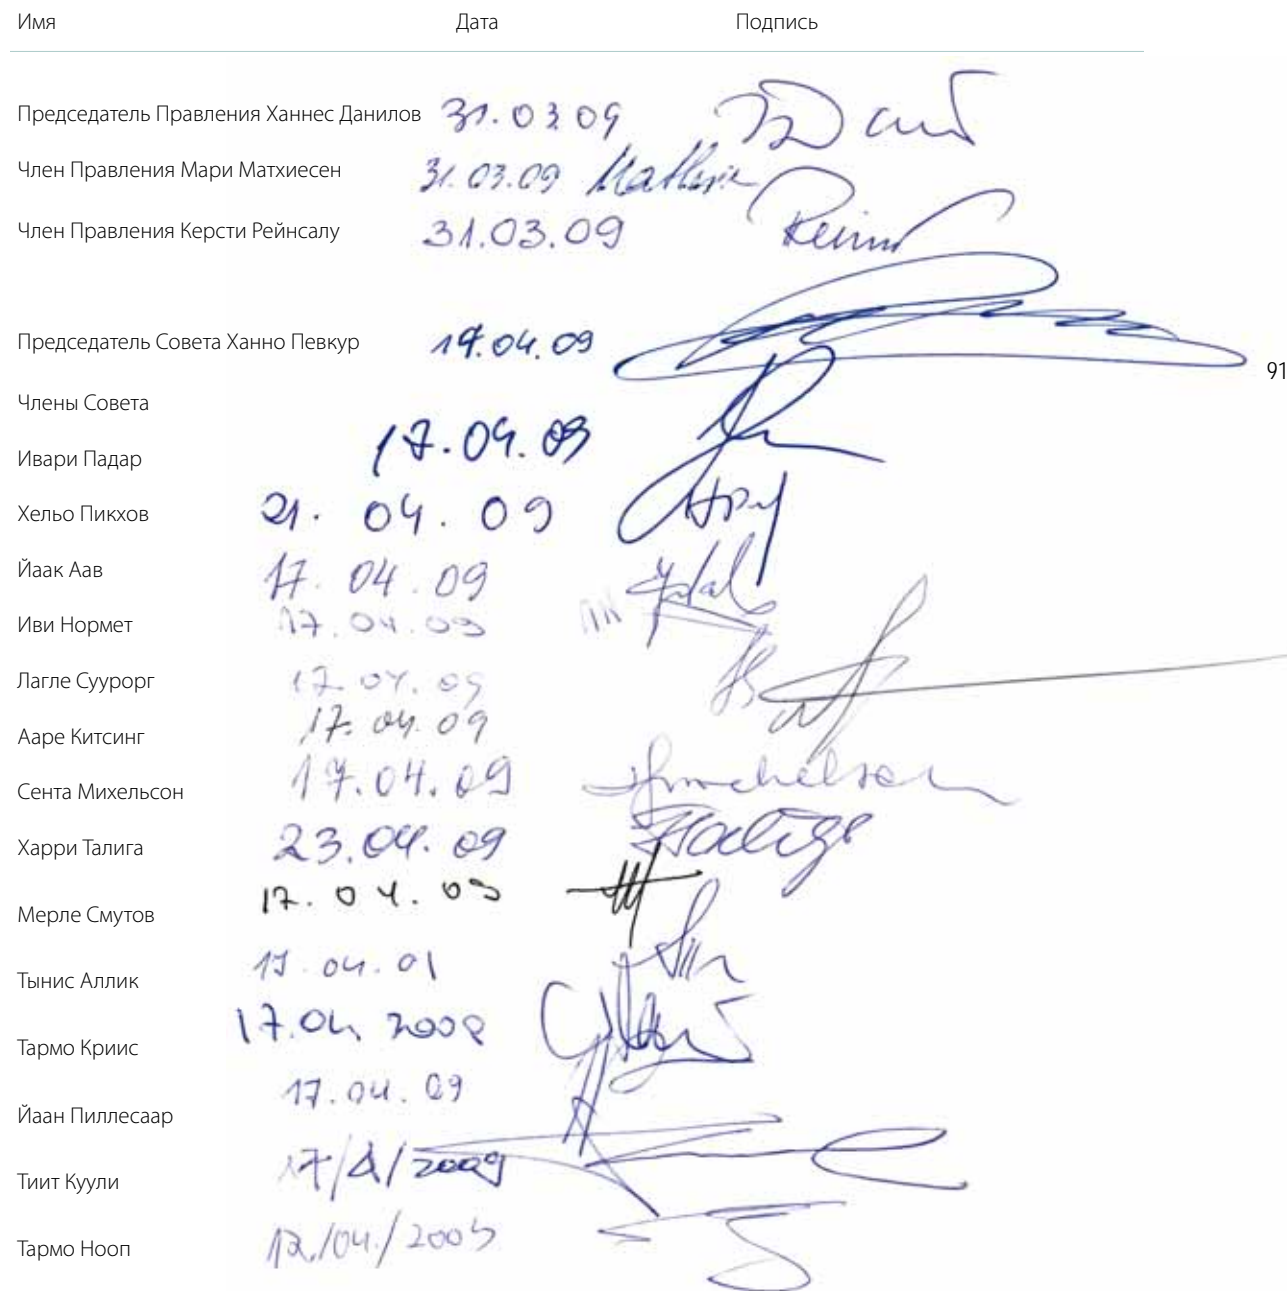 Имя Дата Подпись
Председатель Правления Ханнес Данилов 31.03 09
Член Правления Мари Матхиесен 31.03.09
Член Правления Керсти Рейнсалу 31.03.09
Председатель Совета Ханно Певкур 17.04.09
91
Члены Совета
Ивари Падар 17.04.09
Хельо Пикхов 21. 04. 09
Йаак Аав 17. 04 .09
Иви Нормет 17.04.09
Лагле Суурорг 17.04.09
Ааре Китсинг 17.04.09
Сента Михельсон 17.04.09
Харри Талига 23.04.09
Мерле Смутов 17.04.09
Тынис Аллик
Тармо Криис
Йаан Пиллесаар 17.04.09
Тиит Куули 17/4/2009
Тармо Нооп